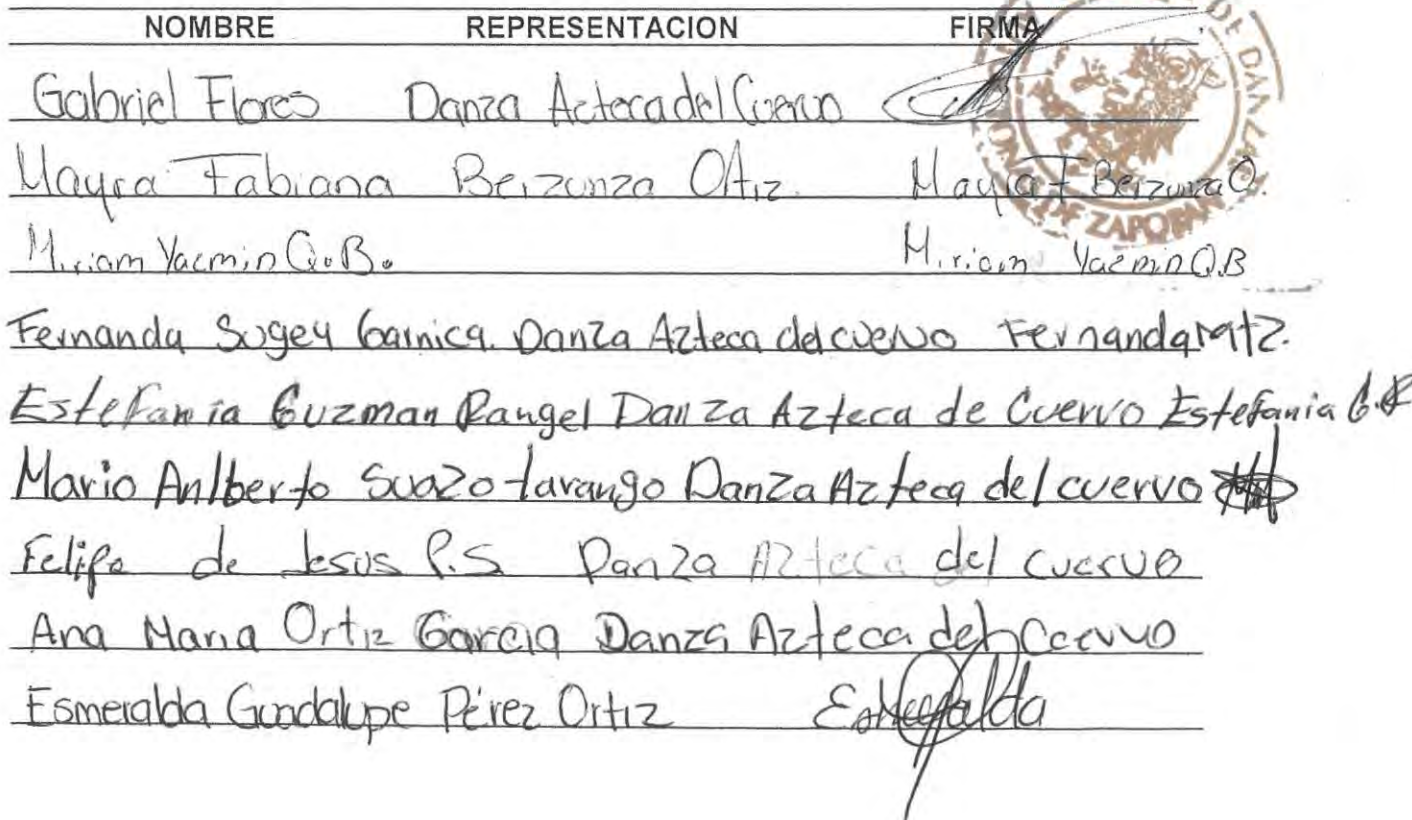 NOMBRE REPRESENTACION FIRMA
Gabriel Flores Danza Azteca del Cuervo
Mayra Fabiana Berzunza Ortiz. Mayra F Berzunza O.
Miriam Yazmin Q.B. Miriam Yazmin Q.B
Fernanda Sugey Garnica. Danza Azteca del cuervo Fernanda Mtz.
Estefania Guzman Rangel Danza Azteca de Cuervo Estefania G.R
Mario Anlberto Suazo tarango Danza Azteca del cuervo
Felipe de Jesus P.S Danza Azteca del cuervo
Ana Maria Ortiz Garcia Danza Azteca del Ccervo
Esmeralda Guadalupe Pérez Ortiz Esmeralda
DE DANZAS
DE ZAPOPAN